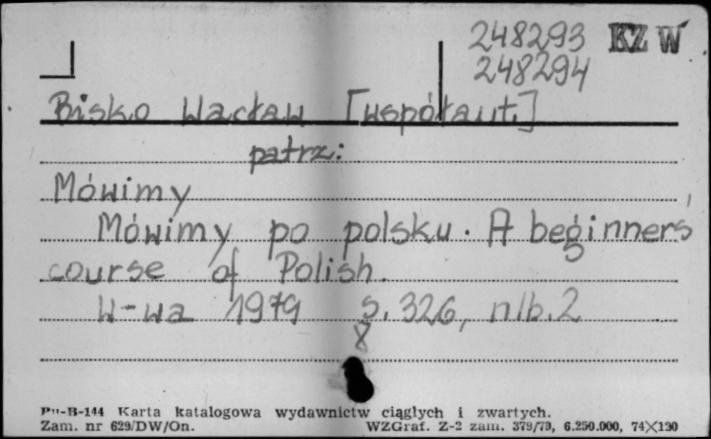 248293 KZ W
248294
Bisko Wacław [współaut.]
patrz:
Mówimy
Mówimy po polsku. A beginners'
course of Polish.
W-wa 1979 s. 326, nlb. 2
8
Pu-B-144 Karta katalogowa wydawnictw ciągłych i zwartych.
Zam. nr 629/DW/On. WZGraf. Z-2 zam. 379/79, 6.250.000, 74×120